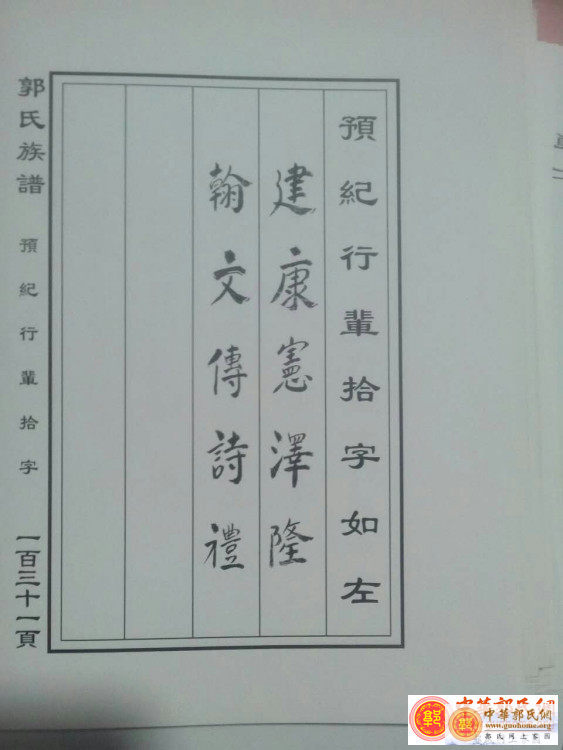 預紀行輩拾字如左
建康憲澤隆
翰文傳詩禮
郭氏族譜 預紀行輩拾字 一百三十一頁
中華郭氏網
www.guohome.org
郭氏网上家园